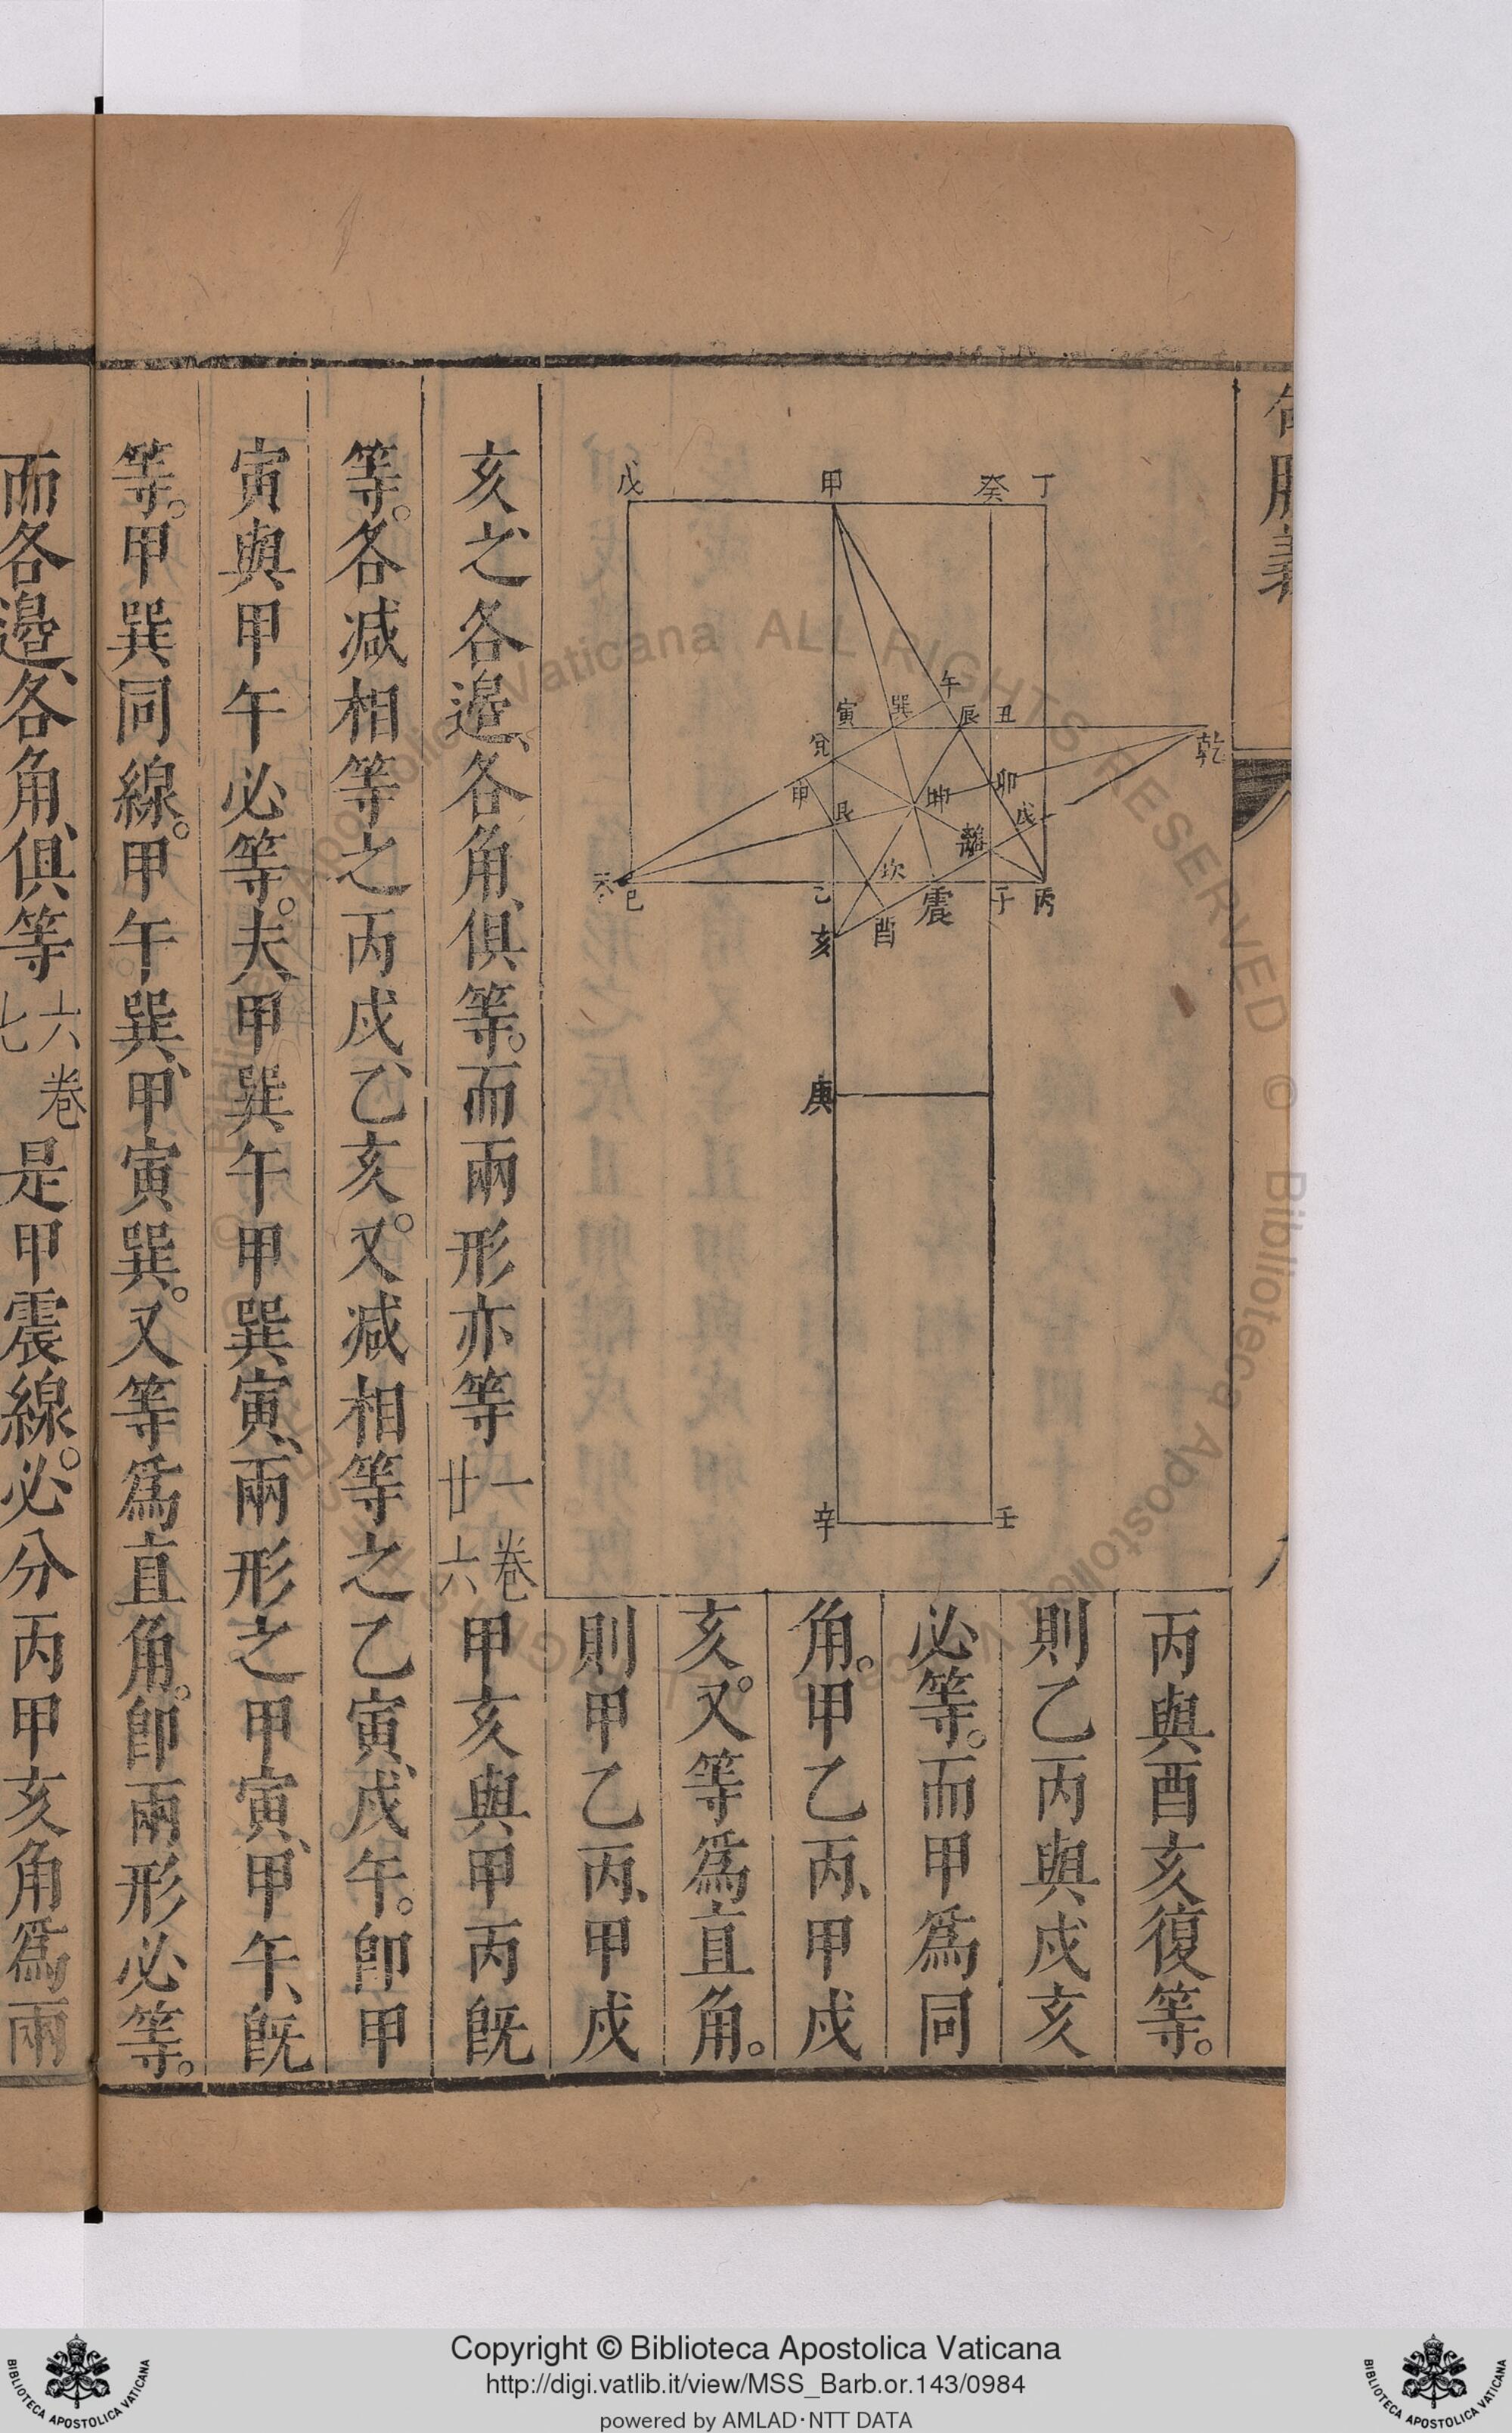 句股義
戊
甲
癸
丁
午
寅
巽
辰
丑
乾
兊
甲
艮
坤
卯
戊
離
坎
未
巳
乙
震
子
丙
亥
酉
庚
辛
壬
丙與酉亥復等。
則乙丙與戌亥
必等。而甲爲同
角。甲乙丙、甲戌
亥。又等爲直角。
則甲乙丙、甲戌
亥之各邉、各角、俱等。而兩形亦等一卷廿六甲亥與甲丙旣
等。各减相等之丙戌、乙亥。又减相等之乙寅、戌午。卽甲
寅與甲午必等。夫甲巽午甲巽寅、兩形之甲寅、甲午、旣
等。甲巽同線。甲午巽、甲寅巽。又等爲直角。卽兩形必等。
而各邉、各角、俱等六卷七是甲震線。必分丙甲亥角爲兩
Copyright © Biblioteca Apostolica Vaticana
http://digi.vatlib.it/view/MSS_Barb.or.143/0984
powered by AMLAD·NTT DATA
BIBLIOTECA APOSTOLICA VATICANA
BIBLIOTECA APOSTOLICA VATICANA